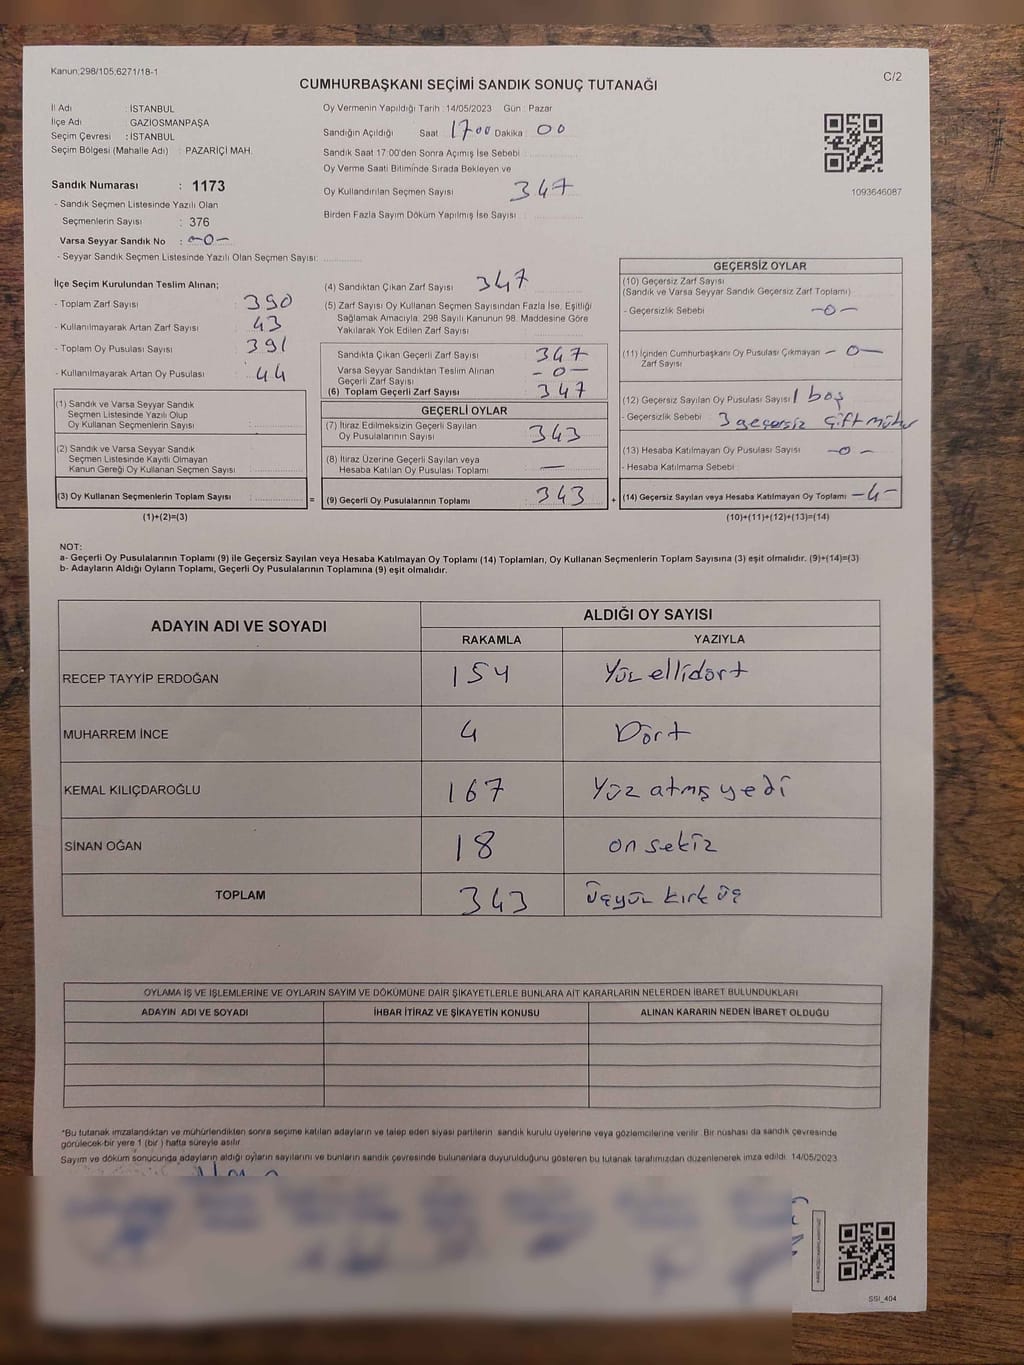 Kanun;298/105;6271/18-1
C/2
CUMHURBAŞKANI SEÇİMİ SANDIK SONUÇ TUTANAĞI
İl Adı : İSTANBUL
İlçe Adı : GAZİOSMANPAŞA
Seçim Çevresi : İSTANBUL
Seçim Bölgesi (Mahalle Adı) : PAZARİÇİ MAH.
Sandık Numarası : 1173
- Sandık Seçmen Listesinde Yazılı Olan
Seçmenlerin Sayısı : 376
Varsa Seyyar Sandık No : -0-
- Seyyar Sandık Seçmen Listesinde Yazılı Olan Seçmen Sayısı:
Oy Vermenin Yapıldığı Tarih :14/05/2023 Gün : Pazar
Sandığın Açıldığı Saat 1700 Dakika : 00
Sandık Saat 17:00'den Sonra Açımış İse Sebebi
Oy Verme Saati Bitiminde Sırada Bekleyen ve
Oy Kullandırılan Seçmen Sayısı 347
Birden Fazla Sayım Döküm Yapılmış İse Sayısı
1093646087
İlçe Seçim Kurulundan Teslim Alınan;
- Toplam Zarf Sayısı : 390
- Kullanılmayarak Artan Zarf Sayısı : 43
- Toplam Oy Pusulası Sayısı : 391
- Kullanılmayarak Artan Oy Pusulası : 44
(1) Sandık ve Varsa Seyyar Sandık
Seçmen Listesinde Yazılı Olup
Oy Kullanan Seçmenlerin Sayısı
(2) Sandık ve Varsa Seyyar Sandık
Seçmen Listesinde Kayıtlı Olmayan
Kanun Gereği Oy Kullanan Seçmen Sayısı
(3) Oy Kullanan Seçmenlerin Toplam Sayısı =
(1)+(2)=(3)
(4) Sandıktan Çıkan Zarf Sayısı : 347
(5) Zarf Sayısı Oy Kullanan Seçmen Sayısından Fazla İse, Eşitliği
Sağlamak Amacıyla; 298 Sayılı Kanunun 98. Maddesine Göre
Yakılarak Yok Edilen Zarf Sayısı
Sandıkta Çıkan Geçerli Zarf Sayısı : 347
Varsa Seyyar Sandıktan Teslim Alınan
Geçerli Zarf Sayısı : -0-
(6) Toplam Geçerli Zarf Sayısı : 347
GEÇERLİ OYLAR
(7) İtiraz Edilmeksizin Geçerli Sayılan
Oy Pusulalarının Sayısı 343
(8) İtiraz Üzerine Geçerli Sayılan veya
Hesaba Katılan Oy Pusulası Toplamı —
(9) Geçerli Oy Pusulalarının Toplamı 343 +
GEÇERSİZ OYLAR
(10) Geçersiz Zarf Sayısı
(Sandık ve Varsa Seyyar Sandık Geçersiz Zarf Toplamı)
- Geçersizlik Sebebi : -0-
(11) İçinden Cumhurbaşkanı Oy Pusulası Çıkmayan
Zarf Sayısı - 0-
(12) Geçersiz Sayılan Oy Pusulası Sayısı 1 boş
- Geçersizlik Sebebi : 3 geçersiz çift mühür
(13) Hesaba Katılmayan Oy Pusulası Sayısı -0-
- Hesaba Katılmama Sebebi
(14) Geçersiz Sayılan veya Hesaba Katılmayan Oy Toplamı -4-
(10)+(11)+(12)+(13)=(14)
NOT:
a- Geçerli Oy Pusulalarının Toplamı (9) ile Geçersiz Sayılan veya Hesaba Katılmayan Oy Toplamı (14) Toplamları, Oy Kullanan Seçmenlerin Toplam Sayısına (3) eşit olmalıdır. (9)+(14)=(3)
b- Adayların Aldığı Oyların Toplamı, Geçerli Oy Pusulalarının Toplamına (9) eşit olmalıdır.
ADAYIN ADI VE SOYADI
ALDIĞI OY SAYISI
RAKAMLA YAZIYLA
RECEP TAYYİP ERDOĞAN 154 Yüz ellidört
MUHARREM İNCE 4 Dört
KEMAL KILIÇDAROĞLU 167 Yüz atmış yedi
SİNAN OĞAN 18 on sekiz
TOPLAM 343 üçyüz kırk üç
OYLAMA İŞ VE İŞLEMLERİNE VE OYLARIN SAYIM VE DÖKÜMÜNE DAİR ŞİKAYETLERLE BUNLARA AİT KARARLARIN NELERDEN İBARET BULUNDUKLARI
ADAYIN ADI VE SOYADI İHBAR İTİRAZ VE ŞİKAYETİN KONUSU ALINAN KARARIN NEDEN İBARET OLDUĞU
*Bu tutanak imzalandıktan ve mühürlendikten sonra seçime katılan adayların ve talep eden siyasi partilerin sandık kurulu üyelerine veya gözlemcilerine verilir. Bir nüshası da sandık çevresinde
görülecek bir yere 1 (bir ) hafta süreyle asılır.
Sayım ve döküm sonucunda adayların aldığı oyların sayılarını ve bunların sandık çevresinde bulunanlara duyurulduğunu gösteren bu tutanak tarafımızdan düzenlenerek imza edildi. 14/05/2023
SSI_404